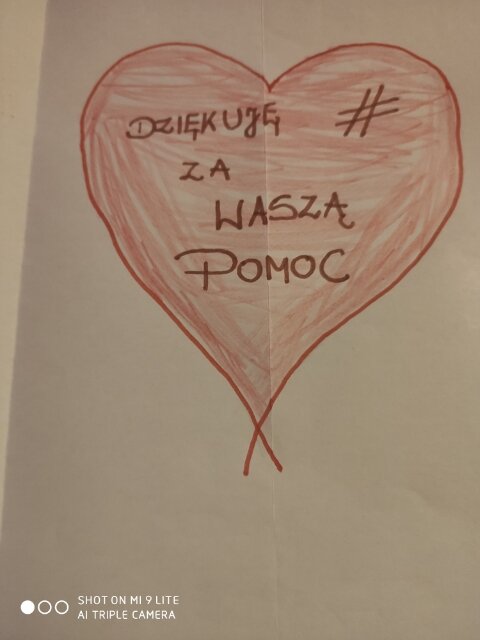 DZIĘKUJĘ #
ZA
WASZĄ
POMOC
SHOT ON MI 9 LITE
AI TRIPLE CAMERA